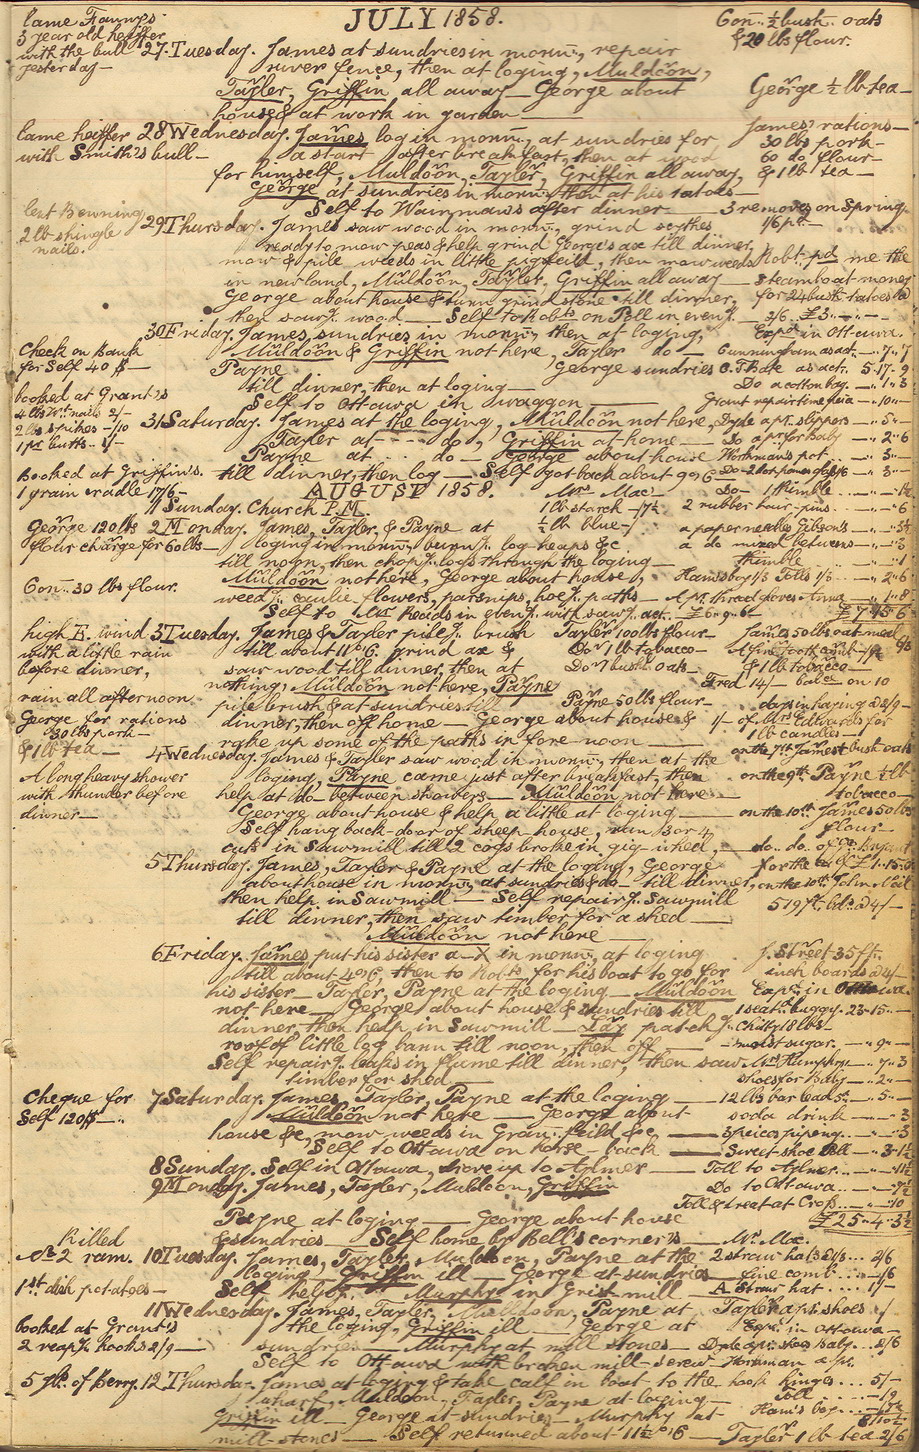 JULY 1858.
lame Fawnys
3 year old heiffer
with the bull
yesterday—
Gon.. ½ bush.. oats
& 20 lbs flour.
27 Tuesday. James at sundries in morn.., repair
river fence, then at loging, Muldoon,
Tayler, Griffin all away — George about
house & at work in garden
George ½ lb tea —
lame heiffer
with Smith's bull —
28 Wednesday. James log in morn.., at sundries for
a start after breakfast, then at wood
for himself, Muldoon, Tayler, Griffin all away,
George at sundries in morn.. then at his tatoes —
Self to Wainman's after dinner —
James' rations —
30 lbs pork —
60 do flour —
& 1 lb tea —
3 removes on Spring
lent Benning
2 lb shingle
nails.
29 Thursday. James saw wood in morn.., grind scythes
ready to mow peas & help grind George's ax till dinner,
mow & pile weeds in little pigfeild, then mow weeds
in newland, Muldoon, Tayler, Griffin all away —
George about house & turn grindstone till dinner,
then saw g. wood — Self to Robts on Poll in eveng. —
Robt. pd. me the
steamboat money
for 24 bush tatoes @
2/6 .. £3 .. — .. —
30 Friday. James, sundries in morn.., then at loging,
Muldoon & Griffin not here, Tayler do —
Payne George sundries
till dinner, then at loging —
Self to Ottawa in waggon —
Exp.d in Ottawa.
Cunningham as act. — " 7 " 7
C. T. Bate as act. 5 " 17 " 9
Do a cotton bag. — " 1 " 3
Grant repair time peia — " 10 " —
Check on Bank
for Self 40 $ —
booked at Grant's
4 lbs Wt. nails 2/-
2 lbs spikes -/10
1 pr butts .. 1/-
31 Saturday. James at the loging, Muldoon not here,
Tayler at - - - do, Griffin at home —
Payne at .. do — George about house
till dinner, then log — Self got back about 9 o,6
Dyde a pr. slippers — " 5 " —
Do a pr. for Baby — " 2 " 6
Workman's pot — " 3 " —
Booked at Griffin's.
1 grain cradle 17/6 —
AUGUST 1858.
1 Sunday. Church P.M.
Mrs Mac —
1 lb starch - 7½
½ lb blue -/
Do — 1 thimble — " — " 1½
2 rubber hair-pins .. — " — " 6
a paper needles Gibson's — " — "
a do mixed betweens — " — " 3
thimble — " — " 1
George 120 lbs
flour charge for 60 lbs —
Gon.. 30 lbs flour.
2 Monday. James, Tayler, & Payne at
loging in morn.., burn g. log heaps &c.
till noon, then chop g. logs through the loging —
Muldoon not here, George about house,
weed g. caulie-flowers, parsnips, hoe g. paths —
Self to Mr Heads in eveng. with saw g. act. £6 " 9 " 6
Ham's boy 1/3 Tolls 1/3 — " 2 " 6
A pr. thread gloves Anna — " 1 " 8
high E. wind
with a little rain
before dinner,
rain all afternoon
3 Tuesday. James & Tayler pile g. brush
till about 11 o,6. grind ax &
saw wood till dinner, then at
nothing, Muldoon not here, Payne
pile brush & at sundries till
dinner, then off home — George about house &
rake up some of the paths in fore-noon —
Tayler 100 lbs flour —
Do " 1 lb tobacco —
Do " 1 bush oats —
Payne 50 lbs flour —
James 50 lbs oat meal
A fine tooth comb -/7½
& 1 lb tobacco —
Fred 14/- balce on 10
days in haying @ 2/9 —
1/- of Mrs Edwards for
1 lb candles —
George for rations
30 lbs pork —
& 1 lb tea —
A long heavy shower
with thunder before
dinner —
4 Wednesday. James & Tayler saw wood in morn.., then at the
loging, Payne came just after breakfast, then
help at do between showers — Muldoon not here —
George about house & help a little at loging —
Self hang back-door of sheep house, run 3 or 4
cuts in Sawmill till 2 cogs broke in gig-wheel, —
on the 7th James 1 bush oats
on the 9th. Payne ½ lb
tobacco —
on the 10th James 50 lbs
flour —
5 Thursday. James, Tayler & Payne at the loging, George
about house in morn.. at sundries &do — till dinner,
then help in Sawmill — Self repair g. Sawmill
till dinner, then saw timber for a shed —
Muldoon not here —
on the 10th. John
519 ft. bds @ 4/ —
6 Friday. James put his sister a-X in morn.., at loging
till about 4 o,6, then to Robts for his boat to go for
his sister — Tayler, Payne at the loging — Muldoon
not here — George about house & sundries till
dinner, then help in Sawmill — Lay patch g.
roof of little log barn till noon, then off —
Self repair g. leaks in flume till dinner, then saw
timber for shed —
J. Street 35 ft.
inch boards @ 4/ —
Exp.d in Ottawa.
1 seatd. buggy .. 23 " 15 " —
18 lbs —
moist sugar .. — " 9 " —
Mrs Humphry — " 7 " 3
shoes for Baby — " 2 " —
Cheque for
Self 120 $ — ..
7 Saturday. James, Tayler, Payne at the loging —
Muldoon not here — George about
house &c, mow weeds in Gran.. feild &c —
Self to Ottawa on horse-back —
12 lbs bar lead 5d. — " 5 " —
soda drink — " — " 3
3 peices piping .. — " — " 3
Sweet shoe Bill — " 3 " 1½
8 Sunday. Self in Ottawa, drove up to Aylmer —
Toll to Aylmer .. — " — " 11½
9 Monday. James, Tayler, Muldoon, Griffin
Payne at loging — George about house
& sundries — Self home by Bell's corner's —
Do to Ottawa .. — " — " 7½
Toll & treat at Cross .. — " — " 10
£25 " 4 " 3½
Killed
No 2 ram.
1st. dish potatoes —
10 Tuesday. James, Tayler, Muldoon, Payne at the
loging — Griffin ill — George at sundries —
Self help g. Murphy in Grist mill —
Mrs. Mac.
2 straw hats .. 2/6
fine comb .... -/6
A straw hat ... 1/-
booked at Grant's
2 reap g. hooks 2/9 —
11 Wednesday. James, Tayler, Muldoon, Payne at
the loging, Griffin ill — George at
sundries — Murphy at mill stones —
Self to Ottawa with broken mill-screw
Tayler a pr. shoes
Exp.. in Ottawa —
Dyde a pr. shoes Baby .. 2/6
Workman a pr.
hook hinges ... 5/-
5 glls. of Berry.
12 Thursday. James at loging & take calf in boat to the
wharf, Muldoon, Tayler, Payne at loging —
Griffin ill — George at sundries — Murphy at
mill-stones — Self returned about 11½ o'6 —
Toll ... -/9
Ham's boy ... -/7½
8/10½
Tayler 1 lb tea 2/6